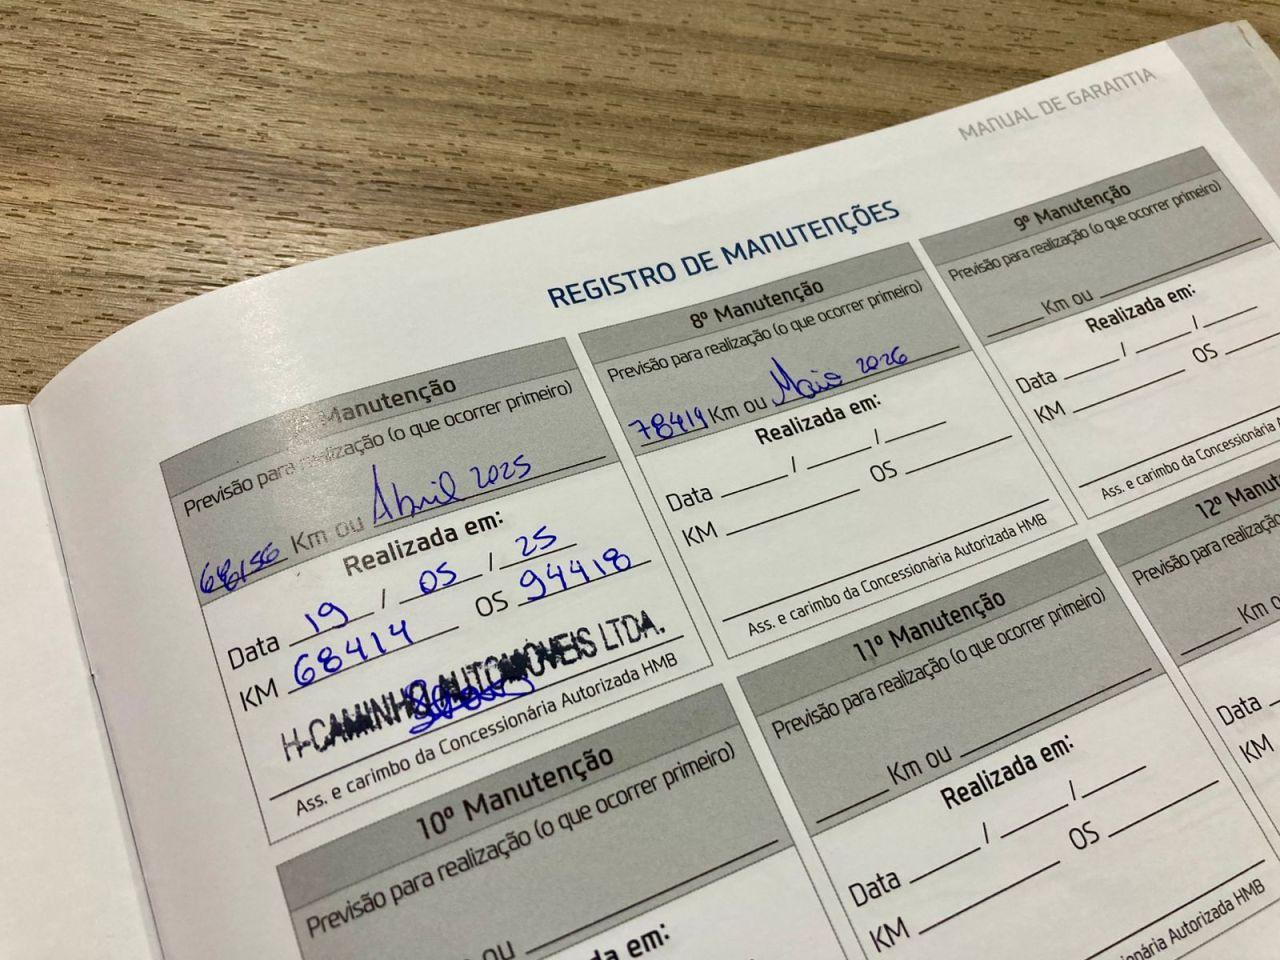 MANUAL DE GARANTIA
REGISTRO DE MANUTENÇÕES
Manutenção
Previsão para realização (o que ocorrer primeiro)
68156 Km ou Abril 2025
Realizada em:
Data 19 / 05 / 25
KM 68414 OS 94418
H-CAMINHO AUTOMÓVEIS LTDA.
Ass. e carimbo da Concessionária Autorizada HMB
8º Manutenção
Previsão para realização (o que ocorrer primeiro)
78414 Km ou Maio 2026
Realizada em:
Data / /
KM OS
Ass. e carimbo da Concessionária Autorizada HMB
9º Manutenção
Previsão para realização (o que ocorrer primeiro)
Km ou
Realizada em:
Data / /
KM OS
Ass. e carimbo da Concessionária A
10º Manutenção
Previsão para realização (o que ocorrer primeiro)
ou
da em:
11º Manutenção
Previsão para realização (o que ocorrer primeiro)
Km ou
Realizada em:
Data / /
KM OS
onária Autorizada HMB
12º Manut
Previsão para realização
Km o
Data
KM